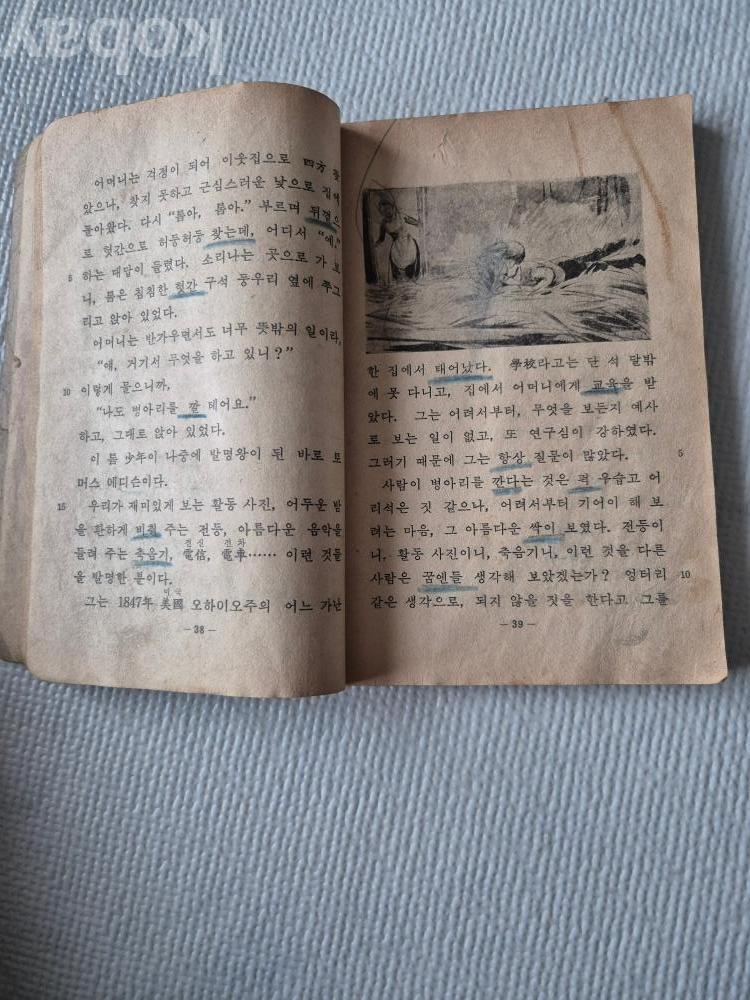 kobay
어머니는 걱정이 되어 이웃집으로 四方 찾
았으나, 찾지 못하고 근심스러운 낯으로 집에
돌아왔다. 다시 “톰아, 톰아.” 부르며 뒤꼍으
로 헛간으로 허둥허둥 찾는데, 어디서 “예.”
5 하는 대답이 들렸다. 소리나는 곳으로 가 보
니, 톰은 침침한 헛간 구석 둥우리 옆에 쭈그
리고 앉아 있었다.
어머니는 반가우면서도 너무 뜻밖의 일이라,
“얘, 거기서 무엇을 하고 있니?”
10 이렇게 물으니까,
“나도 병아리를 깔 테어요.”
하고, 그대로 앉아 있었다.
이 톰 少年이 나중에 발명왕이 된 바로 토
머스 에디슨이다.
15 우리가 재미있게 보는 활동 사진, 어두운 밤
을 환하게 비춰 주는 전등, 아름다운 음악을
전신 전차
들려 주는 축음기, 電信, 電車…… 이런 것들
을 발명한 분이다.
미국
그는 1847年 美國 오하이오주의 어느 가난
— 38 —
한 집에서 태어났다. 學校라고는 단 석 달밖
에 못 다니고, 집에서 어머니에게 교육을 받
았다. 그는 어려서부터, 무엇을 보든지 예사
로 보는 일이 없고, 또 연구심이 강하였다.
그러기 때문에 그는 항상 질문이 많았다. 5
사람이 병아리를 깐다는 것은 퍽 우습고 어
리석은 짓 같으나, 어려서부터 기어이 해 보
려는 마음, 그 아름다운 싹이 보였다. 전등이
니, 활동 사진이니, 축음기니, 이런 것을 다른
사람은 꿈엔들 생각해 보았겠는가? 엉터리 10
같은 생각으로, 되지 않을 짓을 한다고 그를
— 39 —